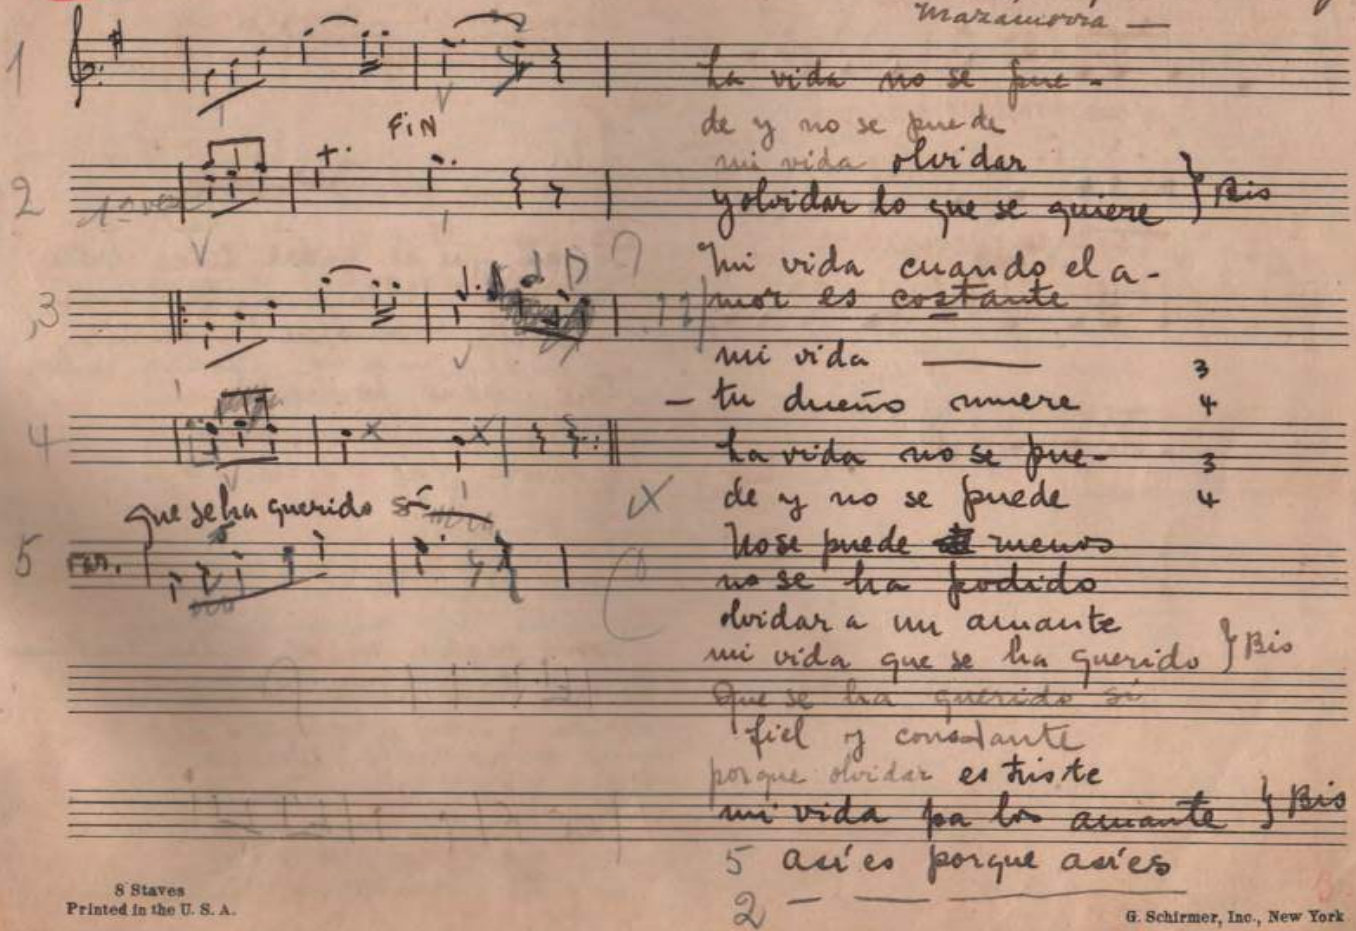 Mazamorra —
1
La vida no se pue-
de y no se puede
FIN
mi vida olvidar
2
1ª vez
y olvidar lo que se quiere } Bis
Mi vida cuando el a-
3
mor es costante
mi vida —— 3
— tu dueño muere 4
4
La vida no se pue- 3
de y no se puede 4
que se ha querido sí
5
No se puede menos
no se ha podido
olvidar a un amante
mi vida que se ha querido } Bis
Que se ha querido sí
fiel y constante
porque olvidar es triste
mi vida pa los amante } Bis
5 así es porque así es
2 — — ——
8 Staves
Printed in the U. S. A.
G. Schirmer, Inc., New York